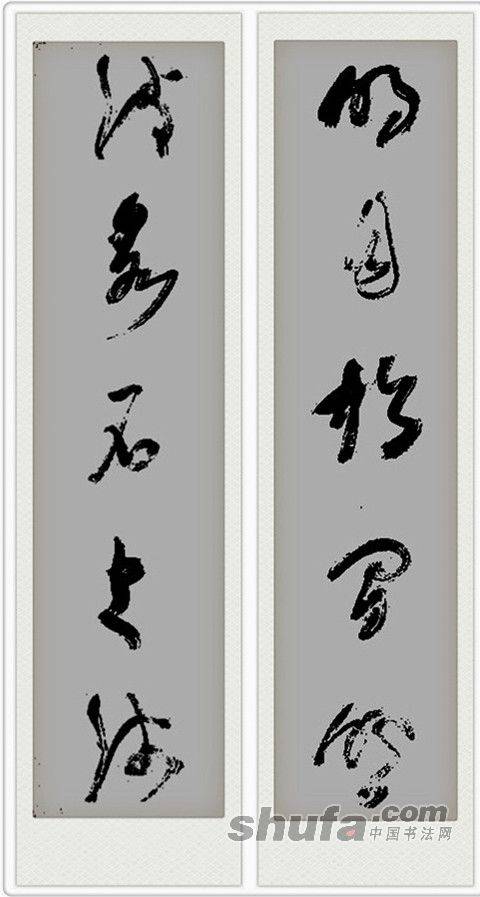 明月松间照
清泉石上流
shufa.com
中国书法网